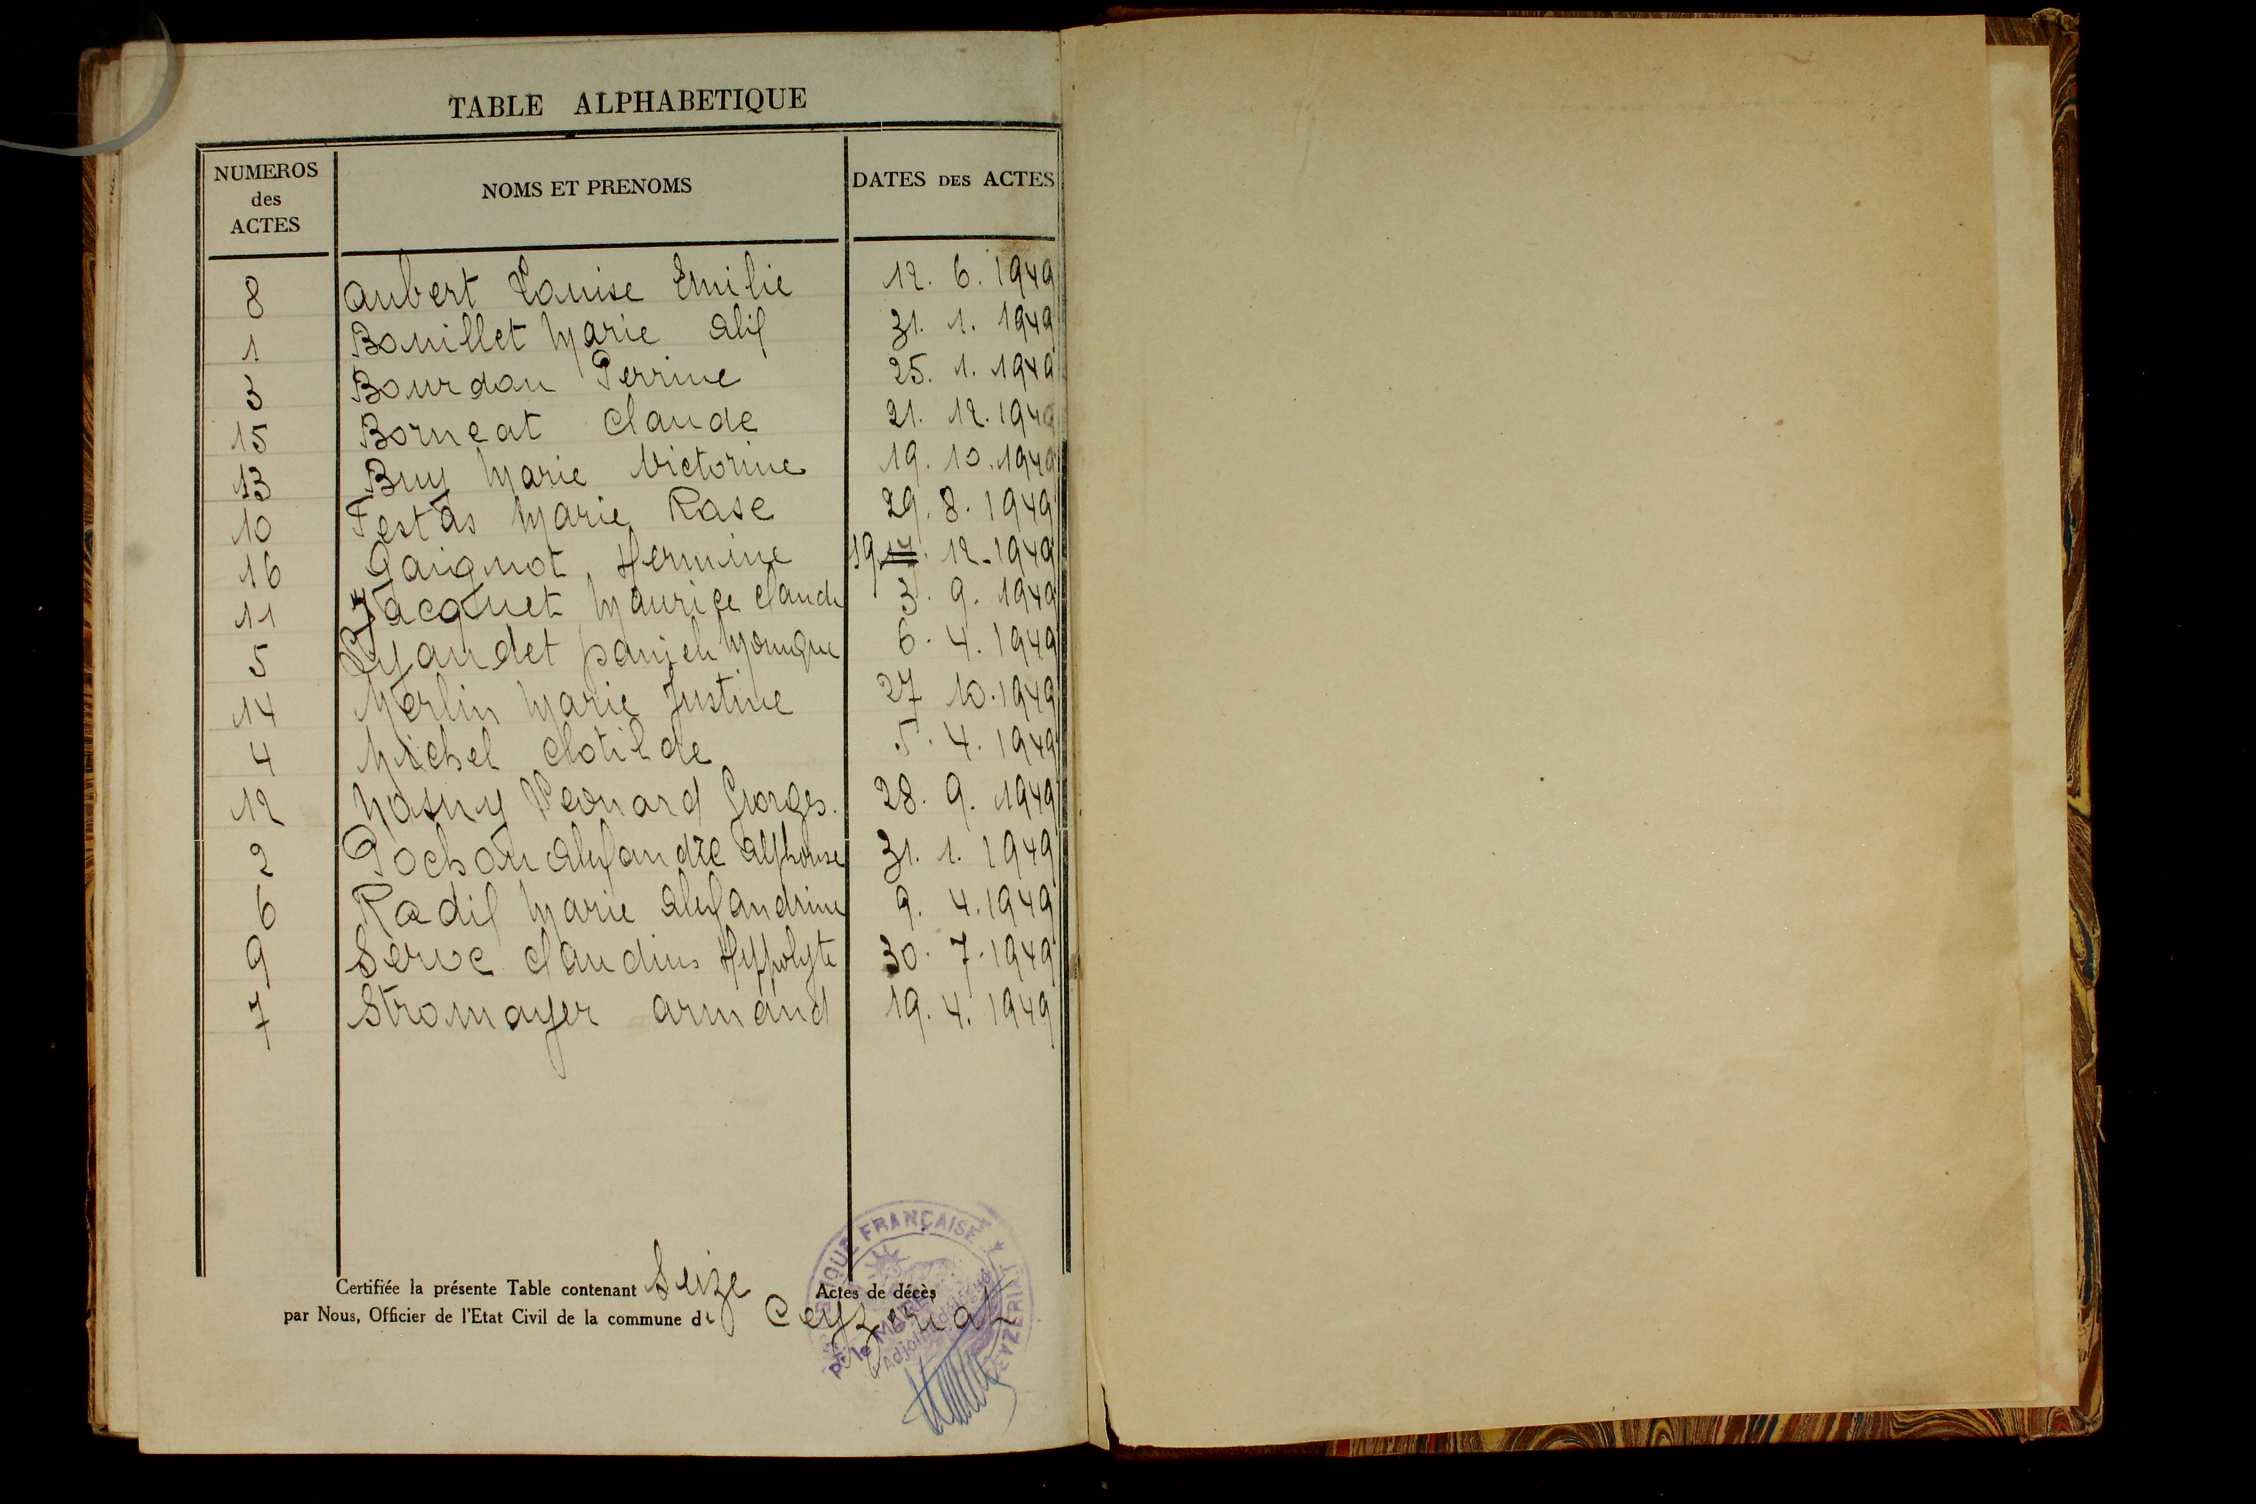 TABLE ALPHABETIQUE
NUMEROS des ACTES
NOMS ET PRENOMS
DATES DES ACTES
8 Aubert Louise Emilie 12. 6. 1949
1 Bouillet Marie Alix 31. 1. 1949
3 Bourdon Perrine 25. 1. 1949
15 Borneat Claude 21. 12. 1949
13 Buy Marie Victorine 19. 10. 1949
10 Festas Marie Rose 29. 8. 1949
16 Gaignot Hermine 19 17. 12. 1949
11 Jacquet Maurice Claude 3. 9. 1949
5 Danièle Monique 6. 4. 1949
14 Merlin Marie Justine 27 10. 1949
4 Michel Clotilde 5. 4. 1949
12 Léonard Georges. 28. 9. 1949
2 Pochon Alexandre Alphonse 31. 1. 1949
6 Radix Marie Alexandrine 9. 4. 1949
9 Serve Claudius Hyppolyte 30. 7. 1949
7 Stromayer Armand 19. 4. 1949
Certifiée la présente Table contenant Seize Actes de décès
par Nous, Officier de l'Etat Civil de la commune de Ceyzériat
FRANÇAISE
pr. le MAIRE